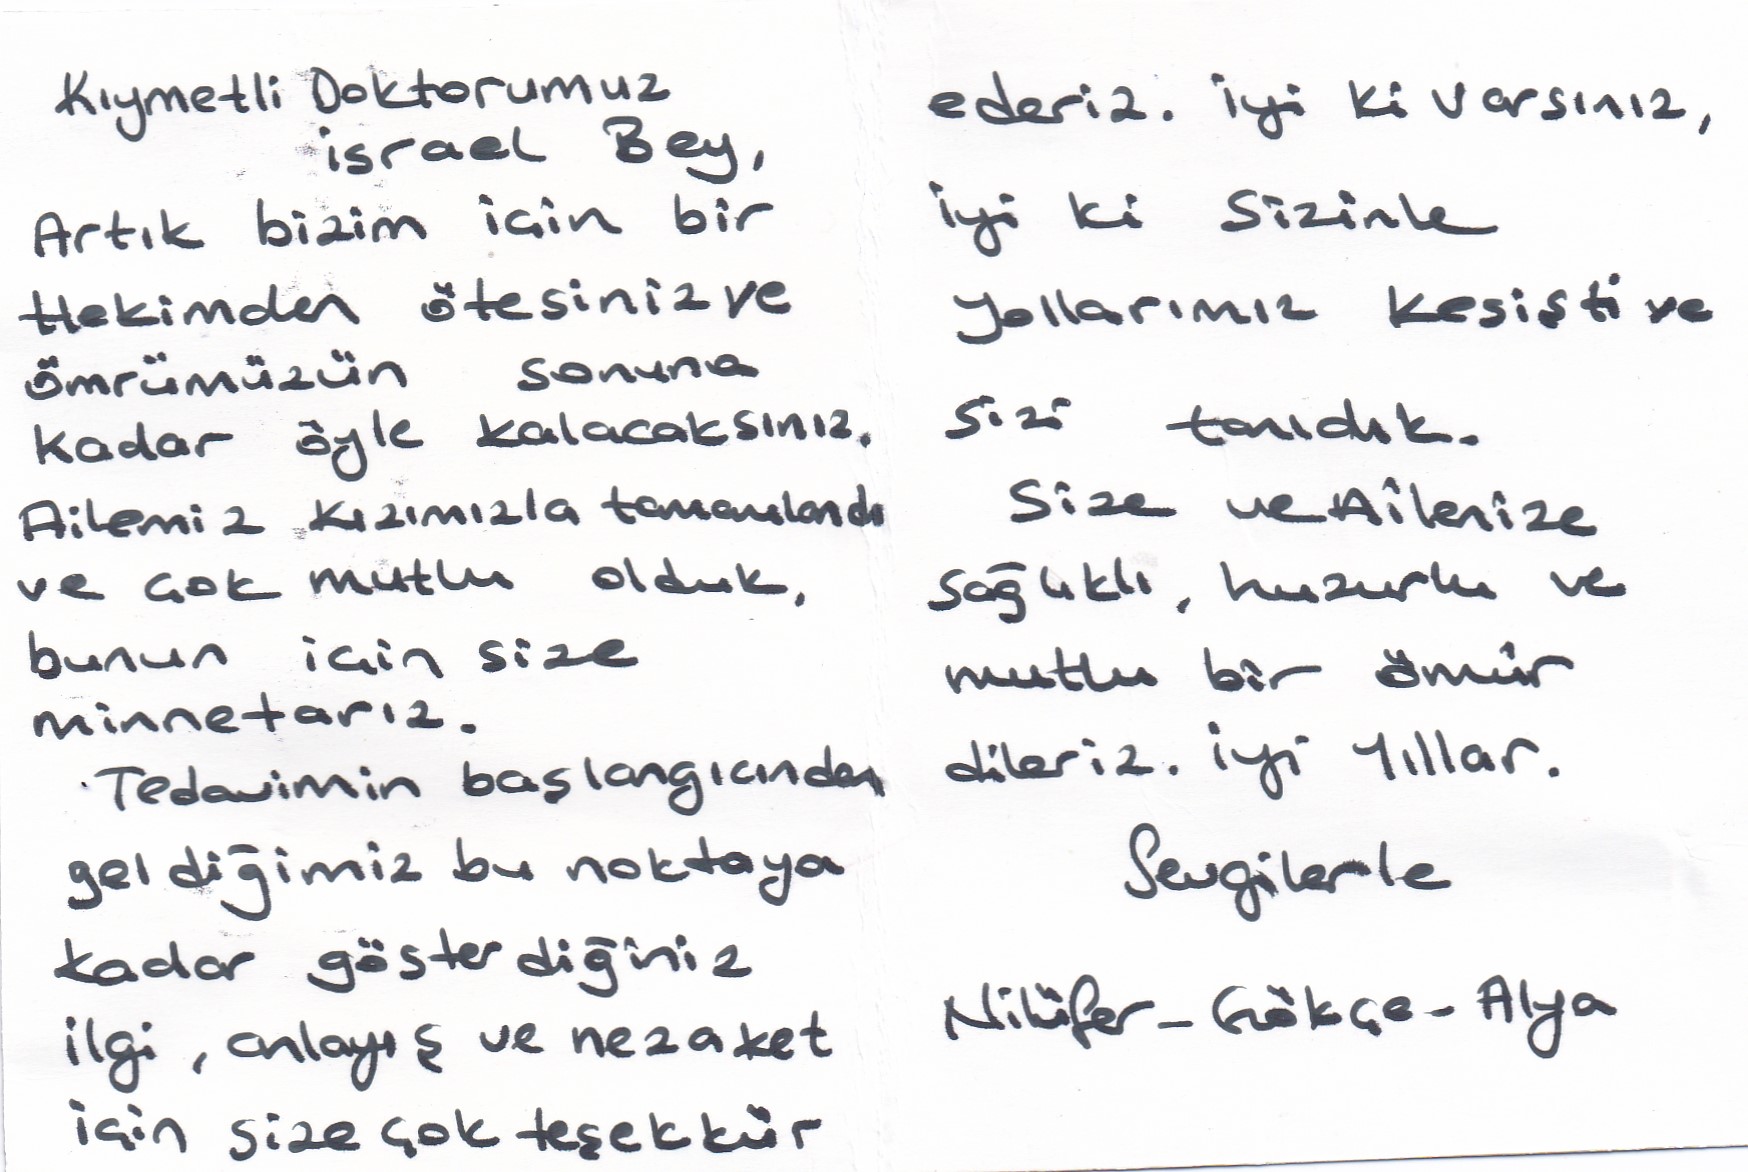 Kıymetli Doktorumuz
israel Bey,
Artık bizim için bir
Hekimden ötesiniz ve
ömrümüzün sonuna
kadar öyle kalacaksınız.
Ailemiz kızımızla tamamlandı
ve çok mutlu olduk,
bunun için size
minnetarız.
Tedavimin başlangıcından
geldiğimiz bu noktaya
kadar gösterdiğiniz
ilgi, anlayış ve nezaket
için size çok teşekkür
ederiz. iyi ki varsınız,
iyi ki sizinle
yollarımız kesişti ve
sizi tanıdık.
Size ve Ailenize
sağlıklı, huzurlu ve
mutlu bir ömür
dileriz. iyi yıllar.
Sevgilerle
Nilüfer - Gökçe - Alya